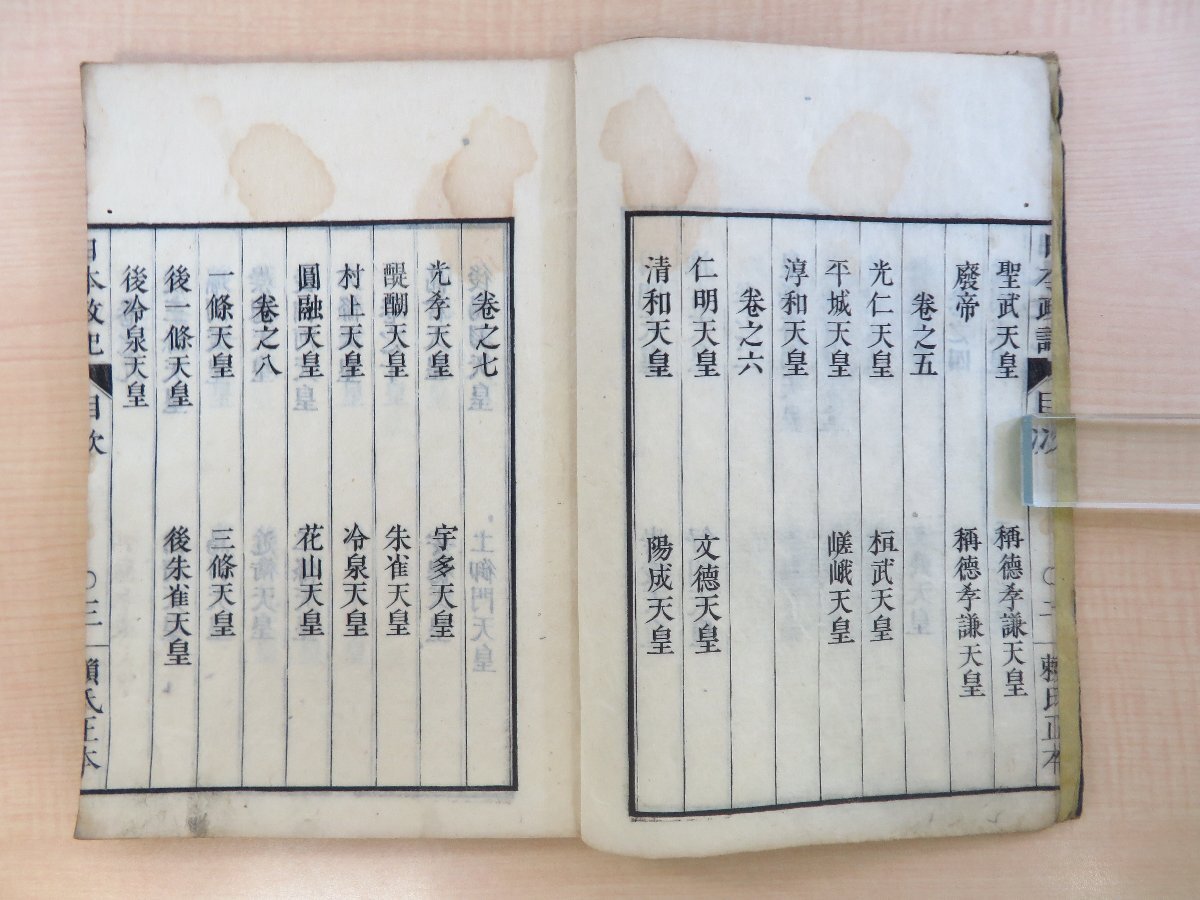 日本政記 目次 〇二 賴氏正本
聖武天皇 稱德孝謙天皇
廢帝 稱德孝謙天皇
卷之五
光仁天皇 桓武天皇
平城天皇 嵯峨天皇
淳和天皇
卷之六
仁明天皇 文德天皇
清和天皇 陽成天皇
卷之七
光孝天皇 宇多天皇
醍醐天皇 朱雀天皇
村上天皇 冷泉天皇
圓融天皇 花山天皇
卷之八
一條天皇 三條天皇
後一條天皇 後朱雀天皇
後冷泉天皇
日本政記 目次 〇三 賴氏正本